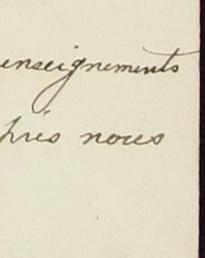 enseignements
près nous